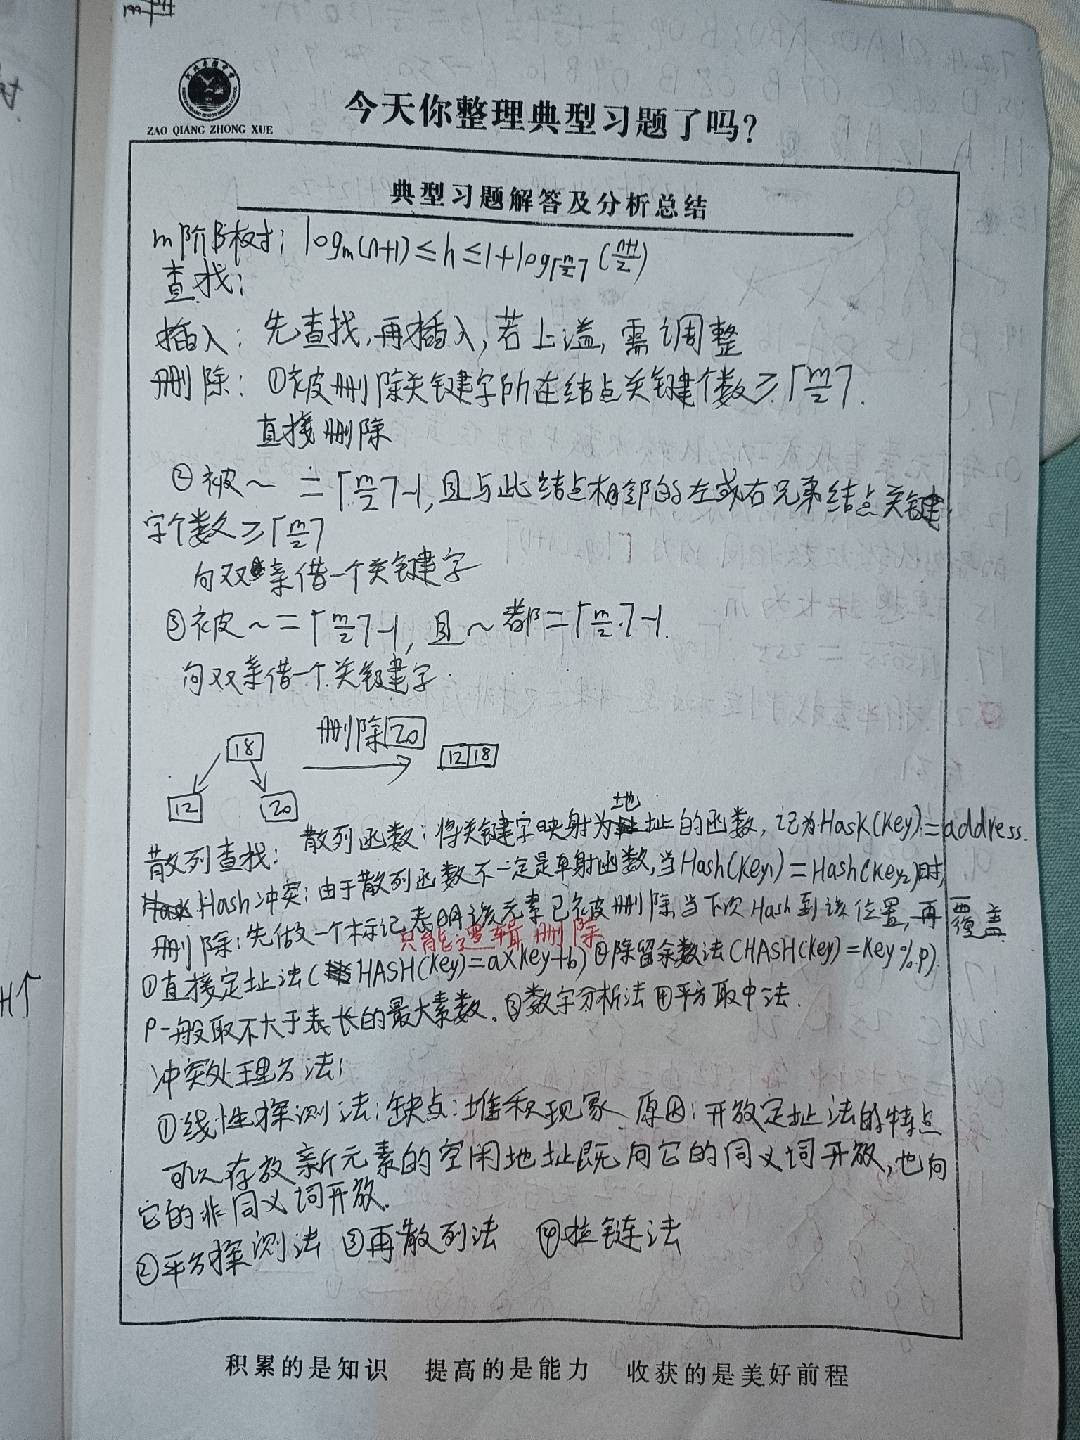 ZAO QIANG ZHONG XUE
今天你整理典型习题了吗?
典型习题解答及分析总结
m阶B树: log_m(n+1)≤h≤1+log_⌈m/2⌉((n+1)/2)
查找:
插入: 先查找,再插入,若上溢,需调整
删除: ①被删除关键字所在结点关键个数≥⌈m/2⌉.
直接删除
②被~ =⌈m/2⌉-1,且与此结点相邻的左或右兄弟结点关键
字个数≥⌈m/2⌉
向双亲借一个关键字
③被~=⌈m/2⌉-1, 且~都=⌈m/2⌉-1.
向双亲借一个关键字
18 删除20 12 18
12 20
散列查找: 散列函数:将关键字映射为地址的函数,记为Hask(Key)=address.
Hash冲突:由于散列函数不一定是单射函数,当Hash(Key1)=Hash(Key2)时,
删除:先做一个标记表明该元素已被删除,当下次Hash到该位置,再覆盖
只能逻辑删除
①直接定址法(HASH(Key)=a×key+b)②除留余数法(HASH(Key)=Key%P)
P一般取不大于表长的最大素数.③数字分析法④平方取中法.
冲突处理方法:
①线性探测法:缺点:堆积现象.原因:开放定址法的特点
可以存放新元素的空闲地址既向它的同义词开放,也向
它的非同义词开放.
②平方探测法 ③再散列法 ④拉链法
H↑
积累的是知识 提高的是能力 收获的是美好前程